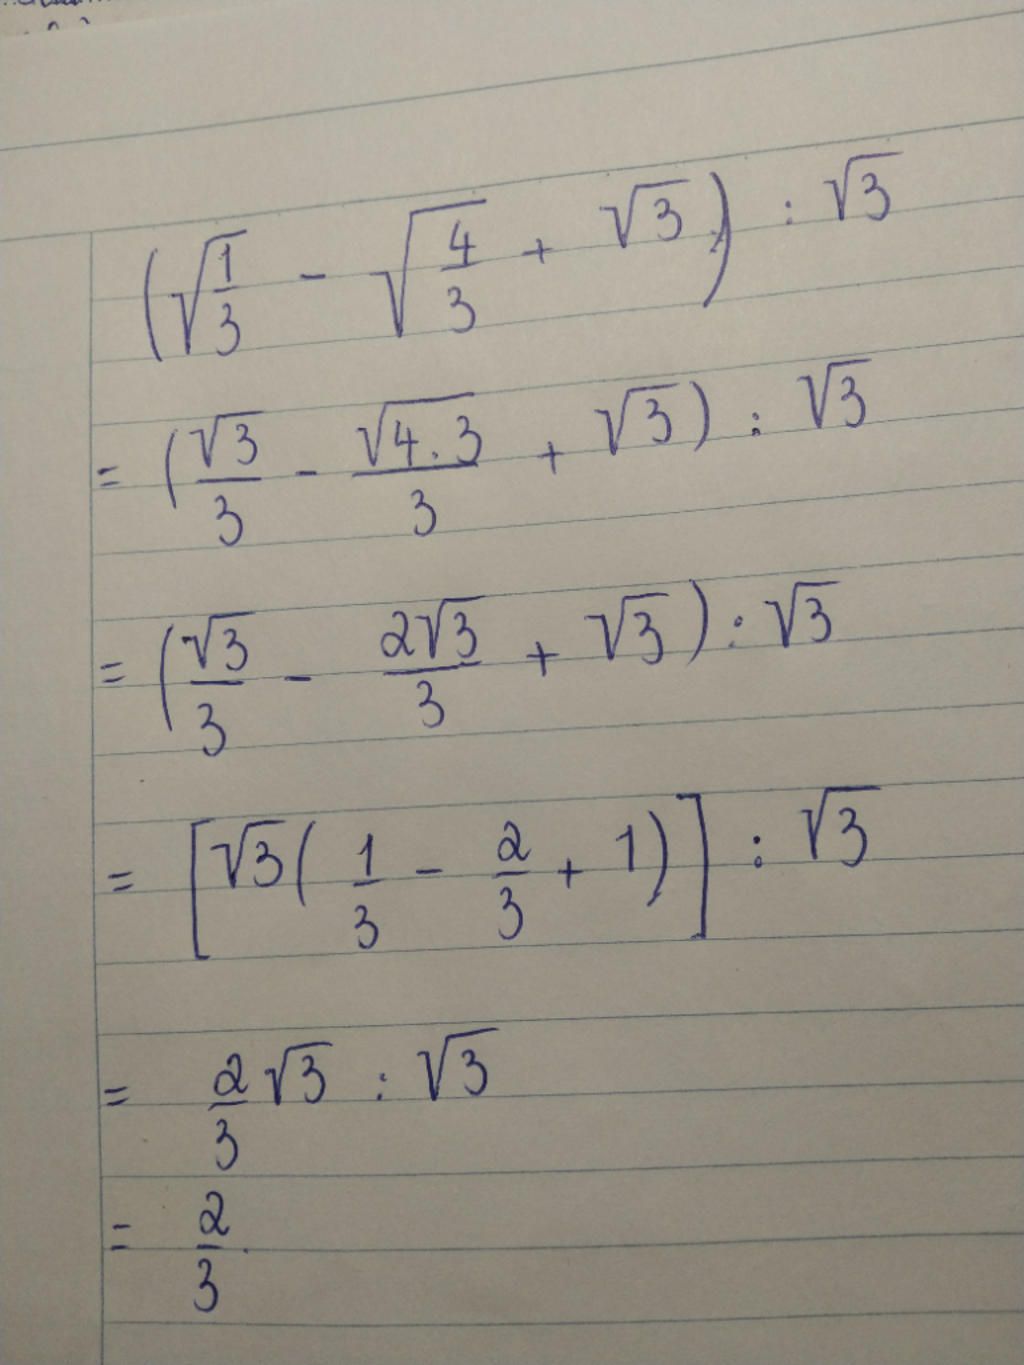 (√(1/3) - √(4/3) + √3) : √3
= (√3/3 - √(4.3)/3 + √3) : √3
= (√3/3 - 2√3/3 + √3) : √3
= [√3(1/3 - 2/3 + 1)] : √3
= 2/3 √3 : √3
= 2/3.